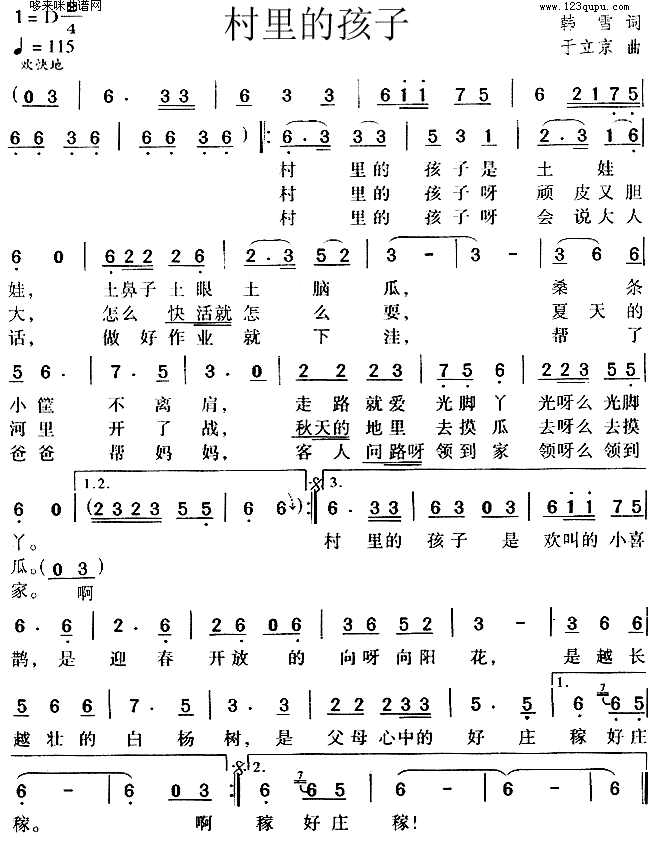 哆来咪曲谱网
www.123qupu.com
1=D 2/4
村里的孩子
韩雪 词
♩=115
于立京 曲
欢快地
(0 3 | 6. 3 3 | 6 3 3 | 6 1 1 7 5 | 6 2 1 7 5 |
6 6 3 6 | 6 6 3 6 ) ‖: 6. 3 3 3 | 5 3 1 | 2. 3 1 6 |
村 里的 孩子是 土 娃
村 里的 孩子呀 顽皮又胆
村 里的 孩子呀 会说大人
6 0 | 6 2 2 2 6 | 2. 3 5 2 | 3 - | 3 - | 3 6 6 |
娃, 土鼻子土眼土 脑瓜, 桑条
大, 怎么快活就怎 么耍, 夏天的
话, 做好作业就 下洼, 帮了
5 6. | 7. 5 | 3. 0 | 2 2 2 3 | 7 5 6 | 2 2 3 5 5 |
小筐 不离肩, 走路就爱 光脚丫 光呀么光脚
河里 开了战, 秋天的地里 去摸瓜 去呀么去摸
爸爸 帮妈妈, 客人问路呀 领到家 领呀么领到
1.2. 3.
6 0 | (2 3 2 3 5 5 | 6 6 ) :‖ 6. 3 3 | 6 3 0 3 | 6 1 1 7 5 |
丫。 村 里的 孩子 是 欢叫的小喜
瓜。(0 3)
家。 啊
6. 6 | 2. 6 | 2 6 0 6 | 3 6 5 2 | 3 - | 6 6 6 |
鹊,是 迎春 开放 的 向呀向阳 花, 是越长
1.
5 6 6 | 7. 5 | 3. 3 | 2 2 2 3 3 | 5. 5 | 6 6 5 |
越壮的 白杨 树,是 父母心中的 好庄 稼好庄
2.
6 - | 6 0 3 :‖ 6 6 5 | 6 - | 6 - | 6 0 ‖
稼。 啊 稼好庄 稼!